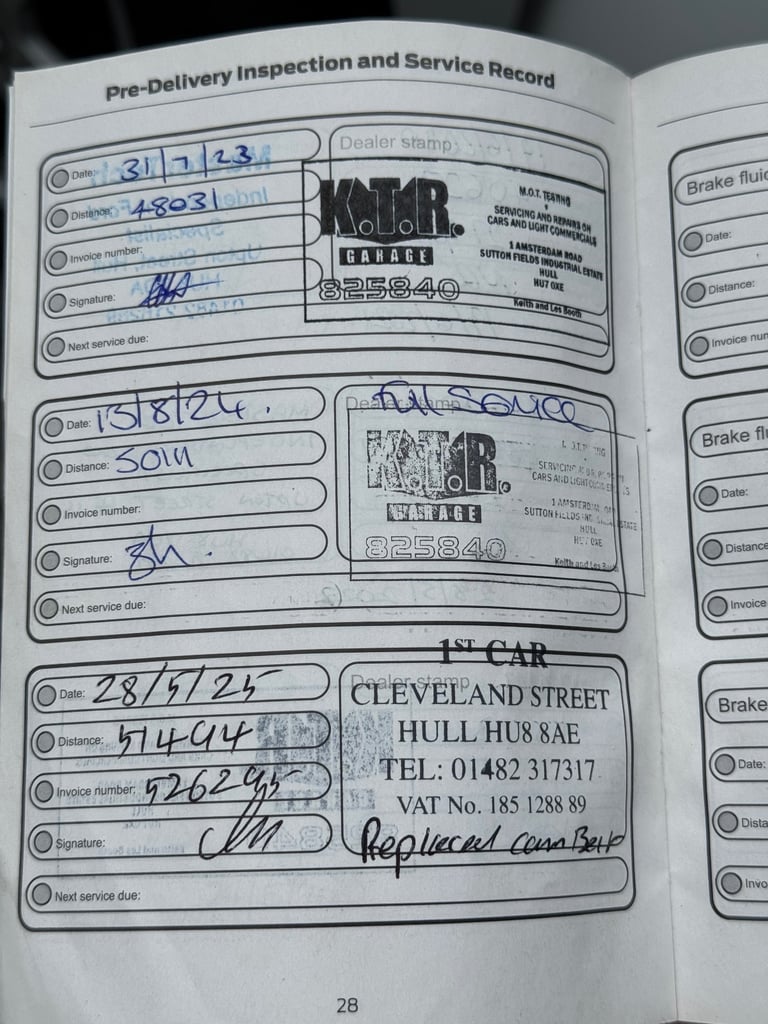 Pre-Delivery Inspection and Service Record
Date: 31/7/23
Distance: 48031
Invoice number:
Signature:
Next service due:
Dealer stamp
K.T.R.
GARAGE
825840
M.O.T. TESTING
SERVICING AND REPAIRS ON
CARS AND LIGHT COMMERCIALS
1 AMSTERDAM ROAD
SUTTON FIELDS INDUSTRIAL ESTATE
HULL
HU7 0XE
Keith and Les Booth
Date: 13/8/24.
Distance: 50111
Invoice number:
Signature:
Next service due:
Dealer stamp
Full Service
K.T.R.
GARAGE
825840
CARS AND LIGHT
1 AMSTERDAM
SUTTON FIELDS ESTATE
HULL
Keith and Les
Date: 28/5/25
Distance: 51494
Invoice number: 526295
Signature:
Next service due:
Dealer stamp
1ST CAR
CLEVELAND STREET
HULL HU8 8AE
TEL: 01482 317317
VAT No. 185 1288 89
Replaced cam Belt
28
Brake fluid
Date:
Distance:
Invoice num
Brake flu
Date:
Distance
Invoice
Brake
Date:
Dista
Invo